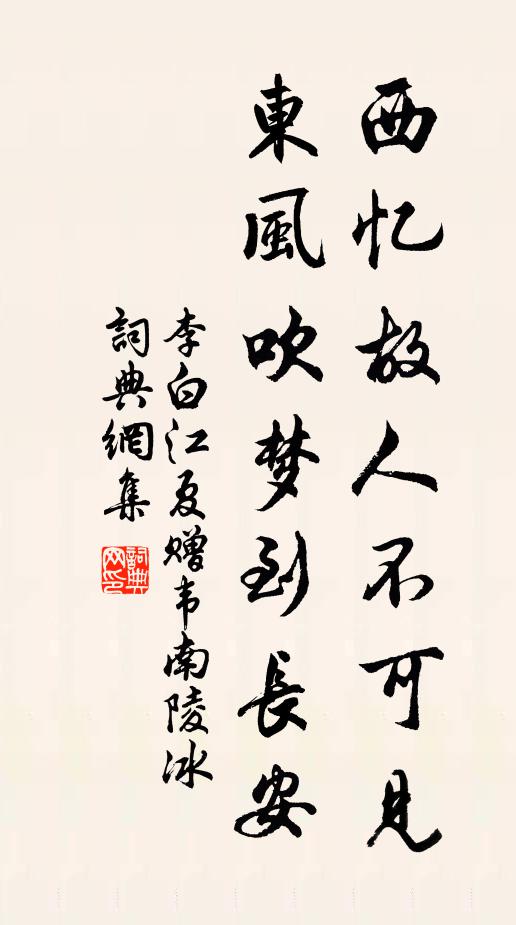 西忆故人不可見
東風吹梦到長安
李白江夏赠韦南陵冰
詞典網集
詞典网印